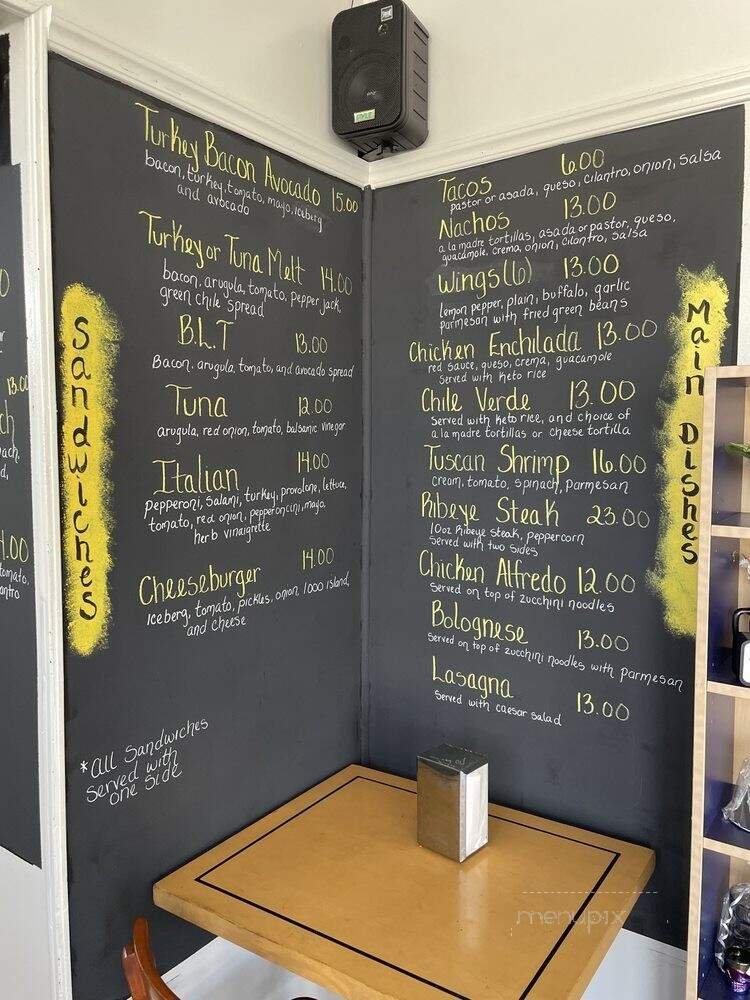 Sandwiches
Turkey Bacon Avocado 15.00
bacon, turkey, tomato, mayo, iceberg
and avocado
Turkey or Tuna Melt 14.00
bacon, arugula, tomato, pepper jack,
green chile spread
B.L.T 13.00
Bacon, arugula, tomato, and avocado spread
Tuna 12.00
arugula, red onion, tomato, balsamic vinegar
Italian 14.00
pepperoni, salami, turkey, provolone, lettuce,
tomato, red onion, pepperoncini, mayo,
herb vinaigrette
Cheeseburger 14.00
iceberg, tomato, pickles, onion, 1000 island,
and cheese
*All Sandwiches
served with
one side
Main Dishes
Tacos 6.00
pastor or asada, queso, cilantro, onion, salsa
Nachos 13.00
a la madre tortillas, asada or pastor, queso,
guacamole, crema, onion, cilantro, salsa
Wings (6) 13.00
lemon pepper, plain, buffalo, garlic
parmesan with fried green beans
Chicken Enchilada 13.00
red sauce, queso, crema, guacamole
served with keto rice
Chile Verde 13.00
Served with keto rice, and choice of
a la madre tortillas or cheese tortilla
Tuscan Shrimp 16.00
cream, tomato, spinach, parmesan
Ribeye Steak 23.00
10oz Ribeye steak, peppercorn
served with two sides
Chicken Alfredo 12.00
served on top of zucchini noodles
Bolognese 13.00
served on top of zucchini noodles with parmesan
Lasagna 13.00
served with caesar salad
13.00
menupix